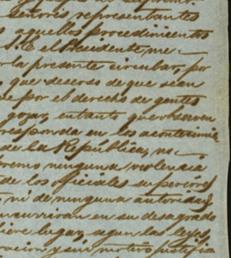 Señores representantes
aquellos procedimientos
S. E. el Presidente me
la presente circular, por
que deseoso de que sean
por el derecho de gentes
gozar, en tanto que observen
responda en los acontecimie
de la República, no
ninguna violencia
de los oficiales superiores
ni de ninguna autoridad
incurrirán en su desagrado
lugar, segun las leyes,